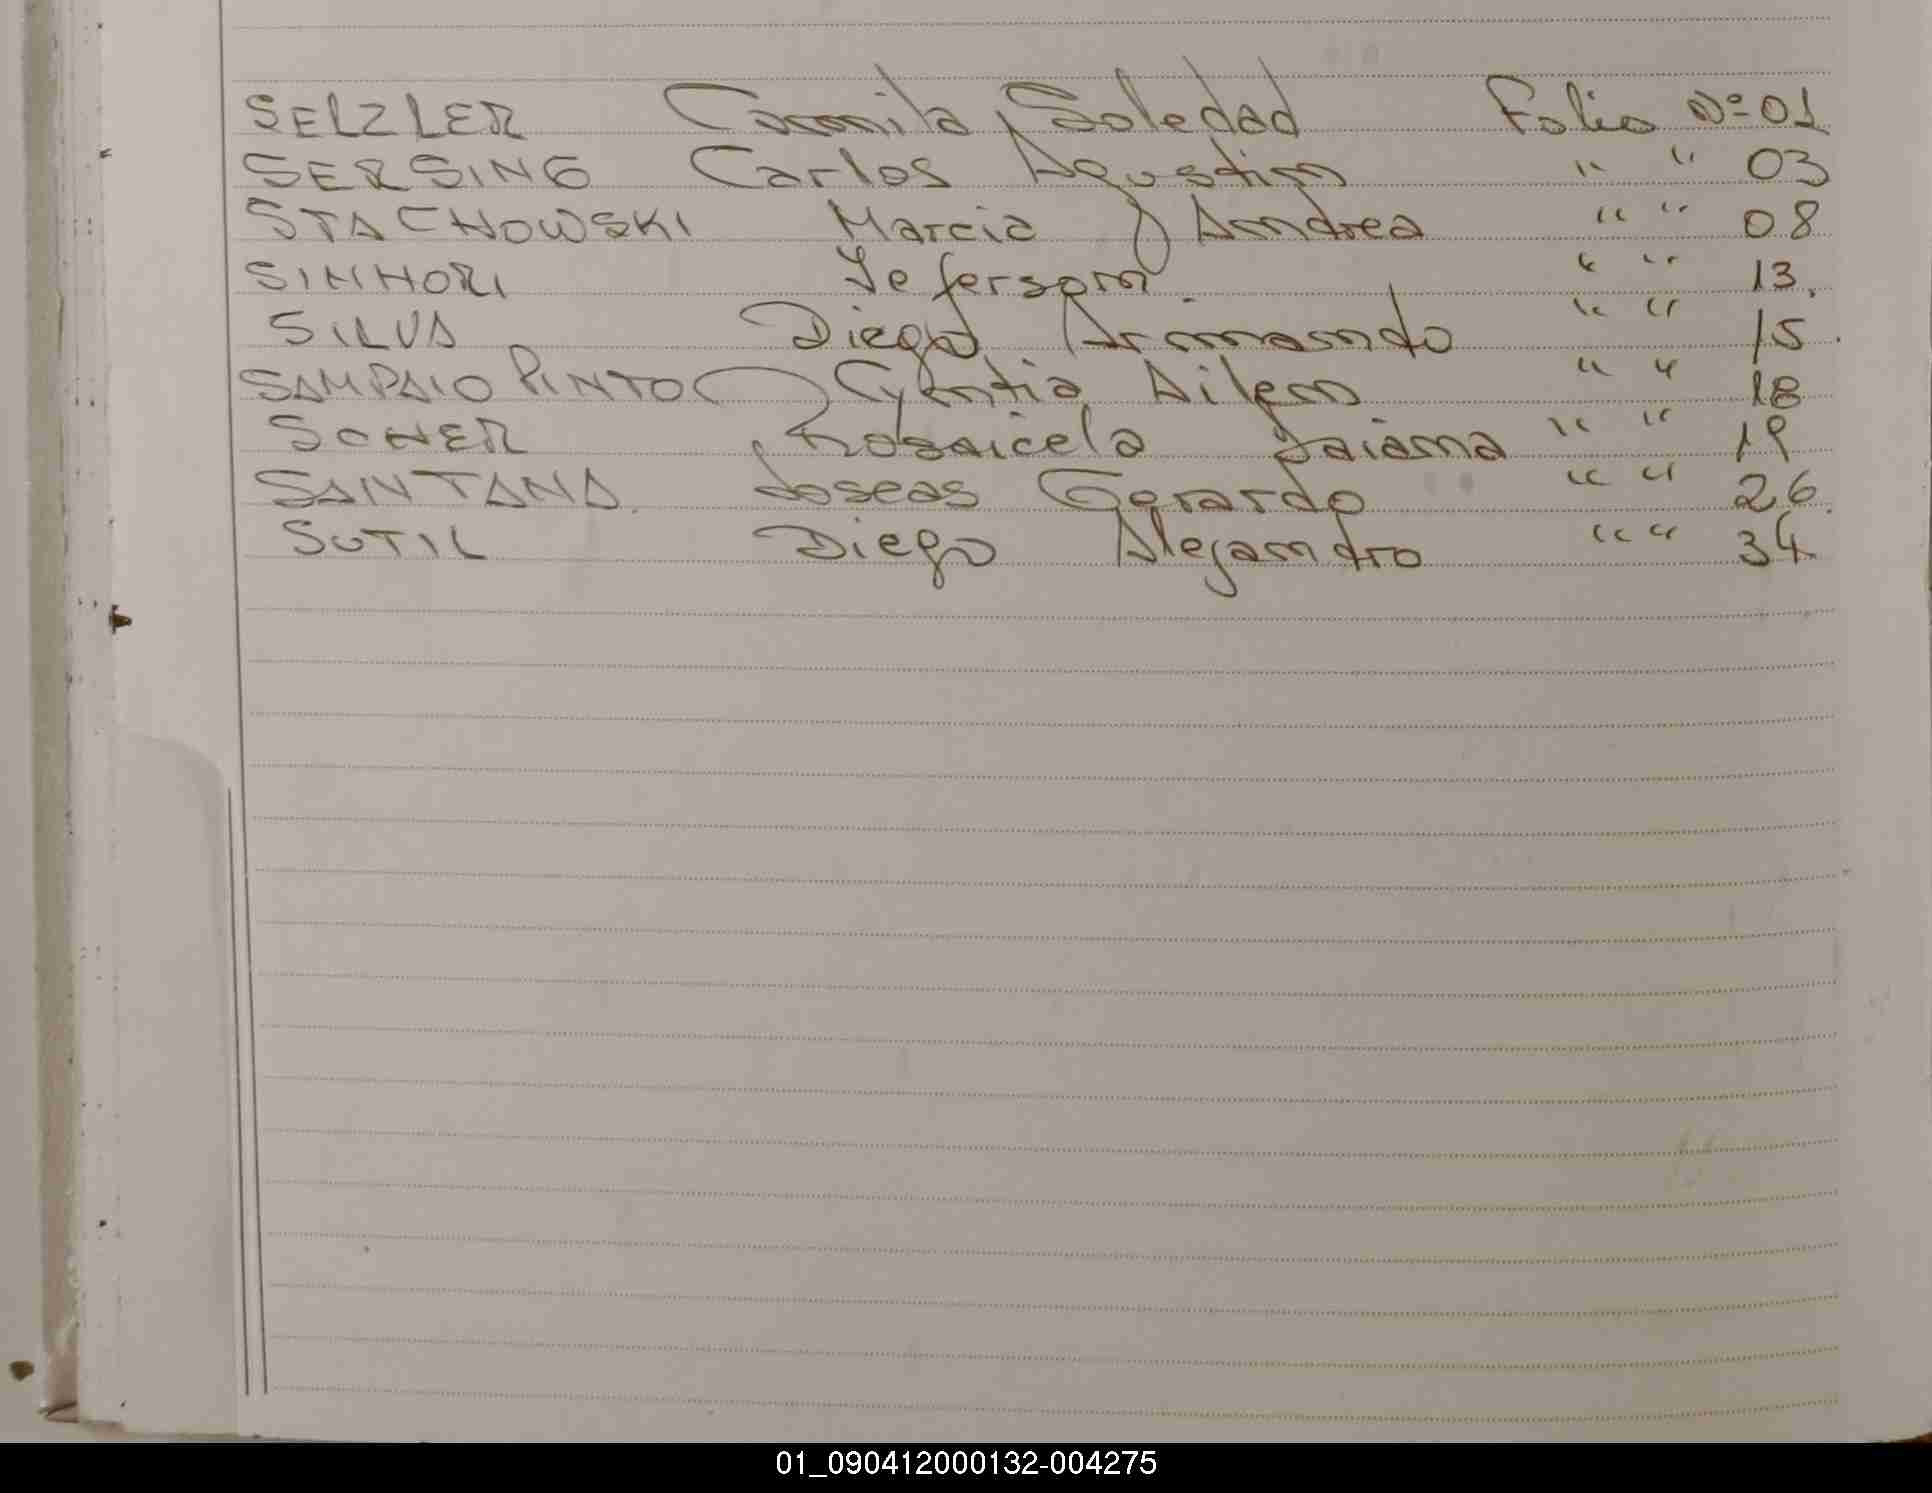 SELZLER Camila Soledad Folio Nº 01
SERSING Carlos Agustin " " 03
STACHOWSKI Marcia Andrea " " 08
SINHORI Jeferson " " 13.
SILVA Diego Armando " " 15.
SAMPAIO PINTO Cyentia Ailen " " 18
SOHER Rosaicela Daiana " " 19
SANTANA Joseas Gerardo " " 26.
SUTIL Diego Alejandro " " 34.
01_090412000132-004275